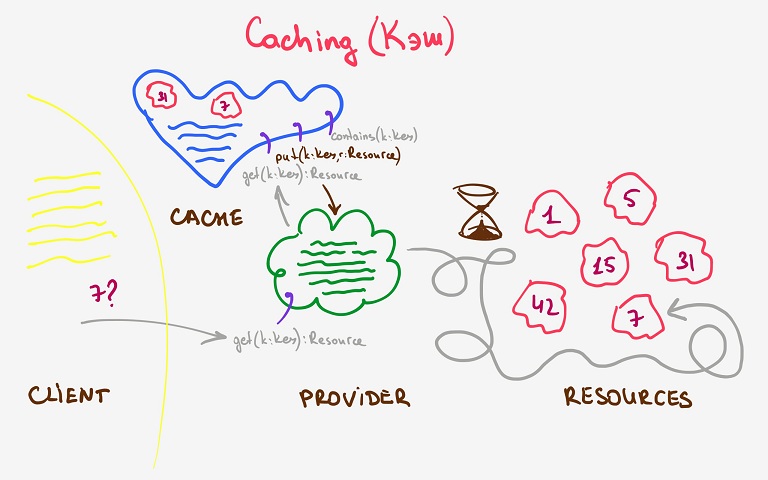 Caching (Кэш)
31
7
contains(k:Key)
put(k:Key,r:Resource)
get(k:Key):Resource
CACHE
7?
get(k:Key):Resource
1
5
15
31
42
7
CLIENT
PROVIDER
RESOURCES